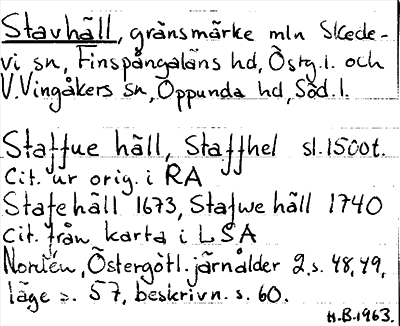 Stavhäll, gränsmärke mln Skede-
vi sn, Finspångaläns hd, Östg.l. och
V.Vingåkers sn, Oppunda hd, Söd.l.
Staffue häll, Staffhel sl.1500t.
Cit. ur orig. i RA
Stafe häll 1673, Stafwe häll 1740
cit. från karta i LSA
Nordén, Östergötl. järnålder 2, s. 48, 49,
läge s. 57, beskrivn. s. 60.
H.B.1963.